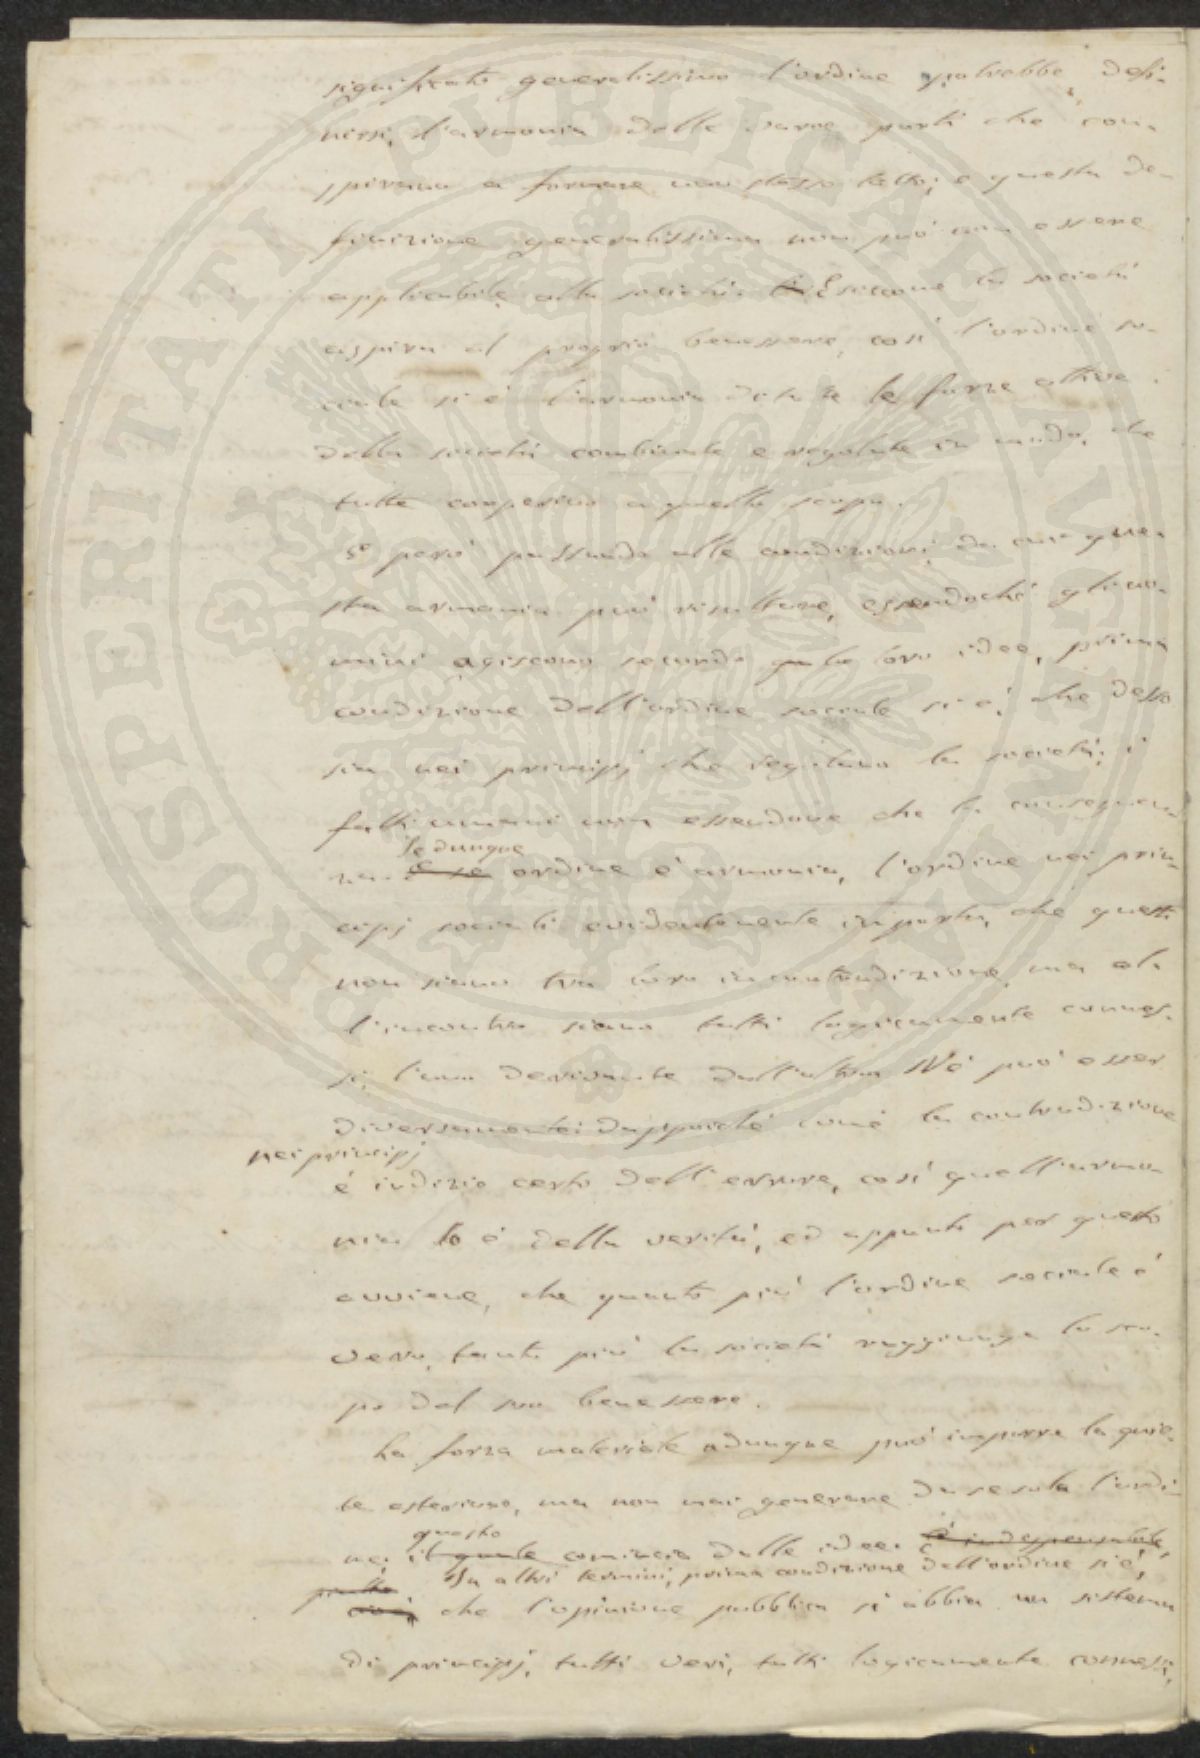 significato generalissimo l'ordine potrebbe defi-
nirsi, l'armonia delle varie parti che con-
spirano a formare uno stesso tutto; e questa de-
finizione generalissima non può non essere
applicabile alla società. E siccome la società
aspira al proprio benessere, così l'ordine so-
ciale si è l'armonia di tutte le forze attive
della società combinate e regolate in modo, che
tutte cooperino a quello scopo.
Se però passando alle condizioni, da cui que-
sta armonia può risultare, essendoché gli uo-
mini agiscono secondo le loro idee, prima
condizione dell'ordine sociale si è, che desso
sia nei principj che regolano la società; i
fatti umani non essendone che la conseguen-
Se dunque
za. e se ordine è armonia, l'ordine nei prin-
cipj sociali evidentemente importa, che questi
non siano tra loro in contradizione, ma al-
l'incontro siano tutti logicamente connes-
si, l'uno derivante dall'altro. Né può esser
diversamente; dappoiché come la contradizione
nei principj
è indizio certo dell'errore, così quell'armo-
nia lo è della verità, ed appunto per questo
avviene, che quanto più l'ordine sociale è
vero, tanto più la società raggiunge lo sco-
po del suo benessere.
La forza materiale adunque può imporre la quie-
te esteriore, ma non mai generare da se sola l'ordi-
questo è indispensabile,
ne; il quale comincia dalle idee.
In altri termini, prima condizione dell'ordine si è,
cioè, che l'opinione pubblica si abbia un sistema
di principj, tutti veri, tutti logicamente connessi,